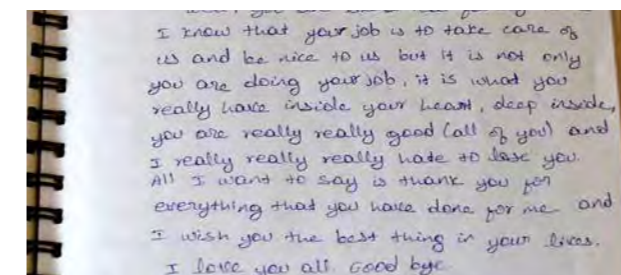 I know that your job is to take care of
us and be nice to us but it is not only
you are doing your job, it is what you
really have inside your heart, deep inside,
you are really really good (all of you) and
I really really really hate to lose you.
All I want to say is thank you for
everything that you have done for me and
I wish you the best thing in your lives.
I love you all. Good bye